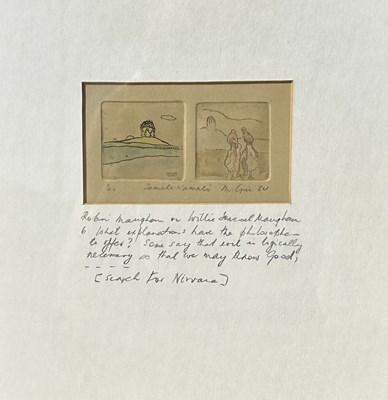 Robin Maugham on Willie Somerset Maugham
6 What explanations have the philosophers
to offer? Some say that evil is logically
necessary so that we may know good,
- - - - -
[Search for Nirvana]